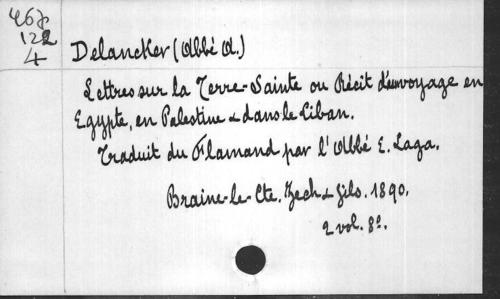 467
122
4
Delancker (Abbé A.)
Lettres sur la Terre-Sainte ou Récit d'un voyage en
Egypte, en Palestine & dans le Liban.
Traduit du Flamand par l'Abbé E. Laga.
Braine-le-Cte. Zech & fils. 1890.
2 vol. 8º.